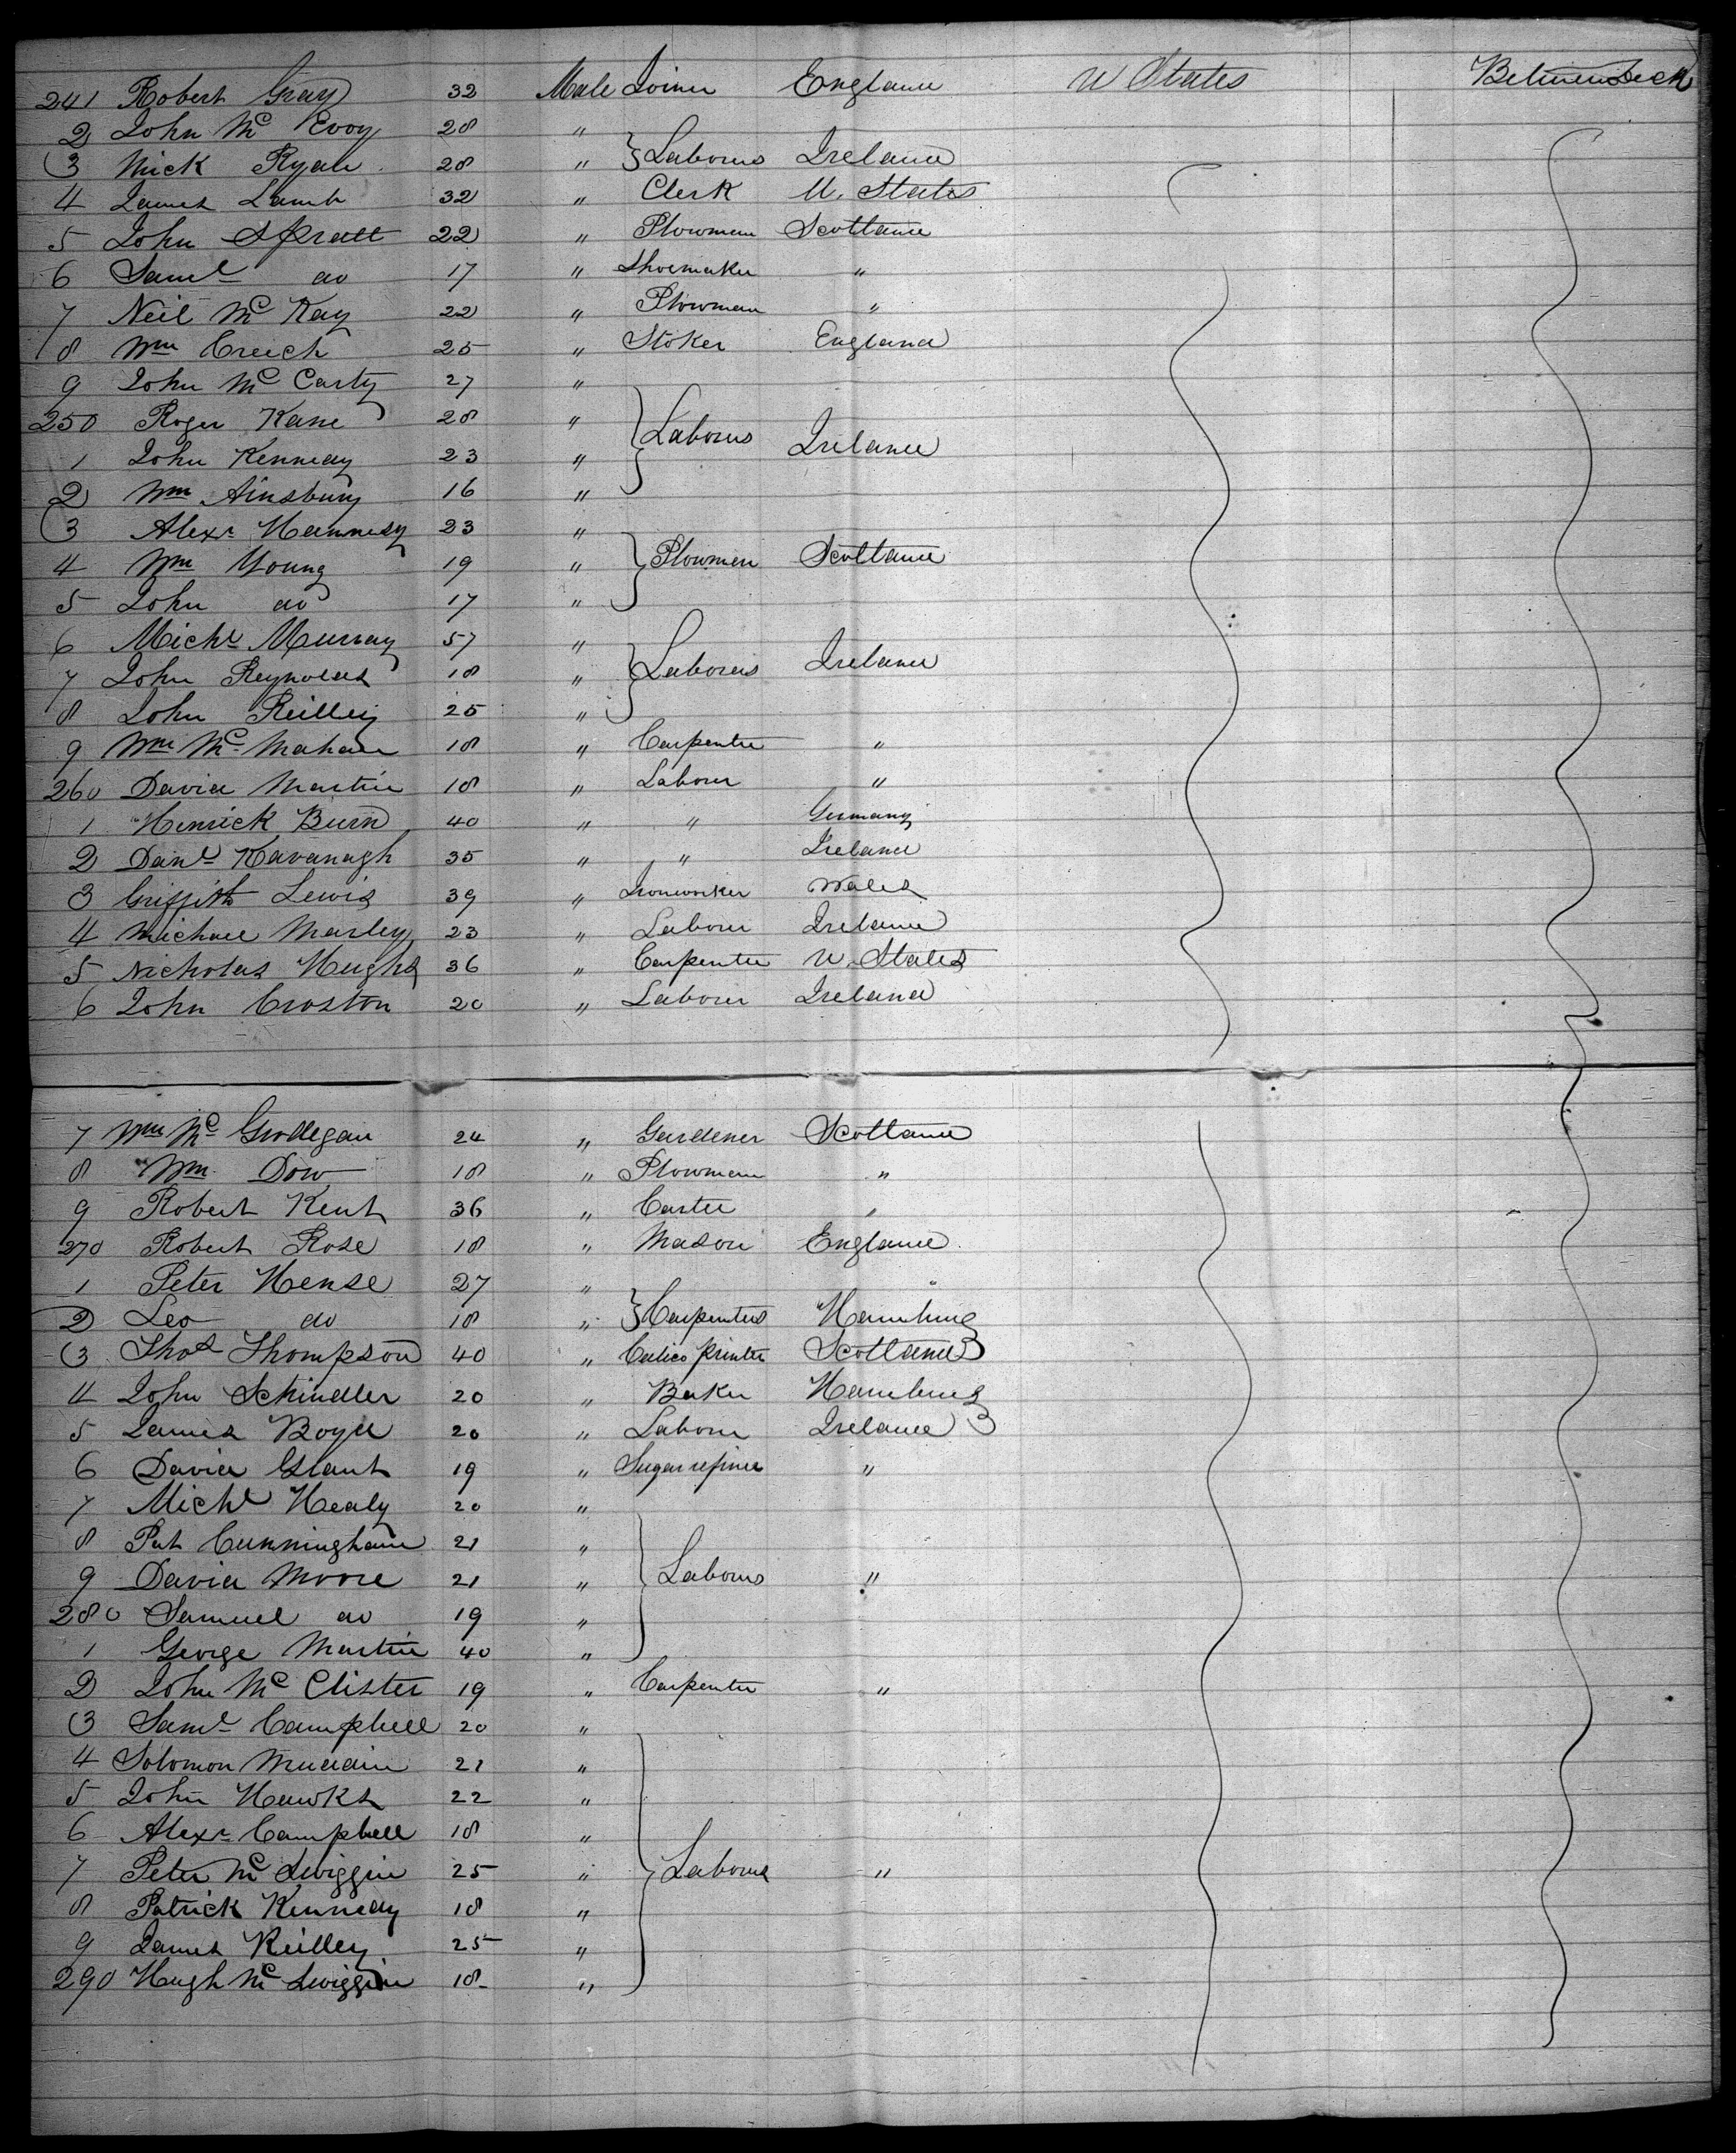 241 Robert Gray 32 Male Joiner England U States Between Deck
2 John Mc Evoy 28 "
3 Mick Ryan 28 " } Laborers Ireland
4 James Lamb 32 " Clerk U. States
5 John Spratt 22 " Plowman Scotland
6 Saml do 17 " Shoemaker "
7 Neil Mc Kay 22 " Plowman "
8 Wm Creech 25 " Stoker England
9 John Mc Carty 27 "
250 Roger Kane 28 " } Laborers Ireland
1 John Kennedy 23 "
2 Wm Ainsbury 16 "
3 Alexr Hannesy 23 "
4 Wm Young 19 " } Plowmen Scotland
5 John do 17 "
6 Michl Murray 57 "
7 John Reynolds 18 " } Laborers Ireland
8 John Reilley 25 "
9 Wm Mc Mahan 18 " Carpenter "
260 David Martin 18 " Laborer "
1 Henrick Burn 40 " " Germany
2 Danl Kavanagh 35 " " Ireland
3 Griffith Lewis 39 " Ironworker Wales
4 Michael Marley 23 " Laborer Ireland
5 Nicholas Hughs 36 " Carpenter U. States
6 John Croston 20 " Laborer Ireland
7 Wm Mc 24 " Gardener Scotland
8 Wm Dow 18 " Plowman "
9 Robert Kent 36 " Carter "
270 Robert Rose 18 " Mason England
1 Peter Hense 27 "
2 Leo do 18 " } Carpenters Hamburg
3 Thos Thompson 40 " Calico printer Scotland
4 John Schindler 20 " Baker Hamburg
5 James Boyd 20 " Laborer Ireland
6 David Grant 19 " Sugar refiner "
7 Michl Healy 20 "
8 Pat Cunningham 21 "
9 David Moore 21 " } Laborers "
280 Samuel do 19 "
1 George Martin 40 "
2 John Mc Clister 19 " Carpenter "
3 Saml Campbell 20 "
4 Solomon 21 "
5 John Hawks 22 "
6 Alexr Campbell 18 "
7 Peter Mc Swiggin 25 " } Laborers "
8 Patrick Kennedy 18 "
9 James Reilley 25 "
290 Hugh Mc Swiggin 18 "